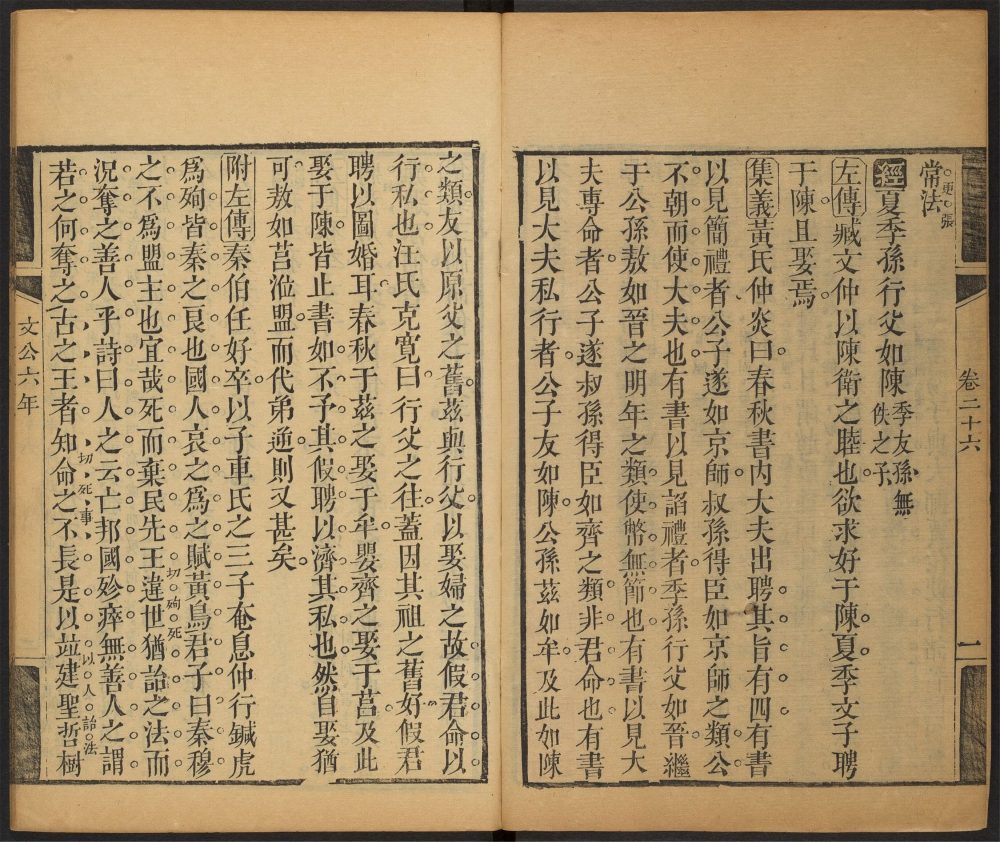 常法
更張
經夏季孫行父如陳季友孫無佚之子
左傳臧文仲以陳衛之睦也欲求好于陳夏季文子聘
于陳且娶焉
集義黃氏仲炎曰春秋書內大夫出聘其旨有四有書
以見簡禮者公子遂如京師叔孫得臣如京師之類公
不朝而使大夫也有書以見謟禮者季孫行父如晉繼
于公孫敖如晉之明年之類使幣無節也有書以見大
夫專命者公子遂叔孫得臣如齊之類非君命也有書
以見大夫私行者公子友如陳公孫茲如牟及此如陳
卷二十六
一
之類友以原父之舊茲與行父以娶婦之故假君命以
行私也汪氏克寬曰行父之往蓋因其祖之舊好假君
聘以圖婚耳春秋于茲之娶于牟嬰齊之娶于莒及此
娶于陳皆止書如不予其假聘以濟其私也然自娶猶
可敖如莒涖盟而代弟逆則又甚矣
附左傳秦伯任好卒以子車氏之三子奄息仲行鍼虎
爲殉皆秦之良也國人哀之爲之賦黃鳥君子曰秦穆
切殉死
之不爲盟主也宜哉死而棄民先王違世猶詒之法而
況奪之善人乎詩曰人之云亡邦國殄瘁無善人之謂
切死事
以人詒法
若之何奪之古之王者知命之不長是以竝建聖哲樹
文公六年